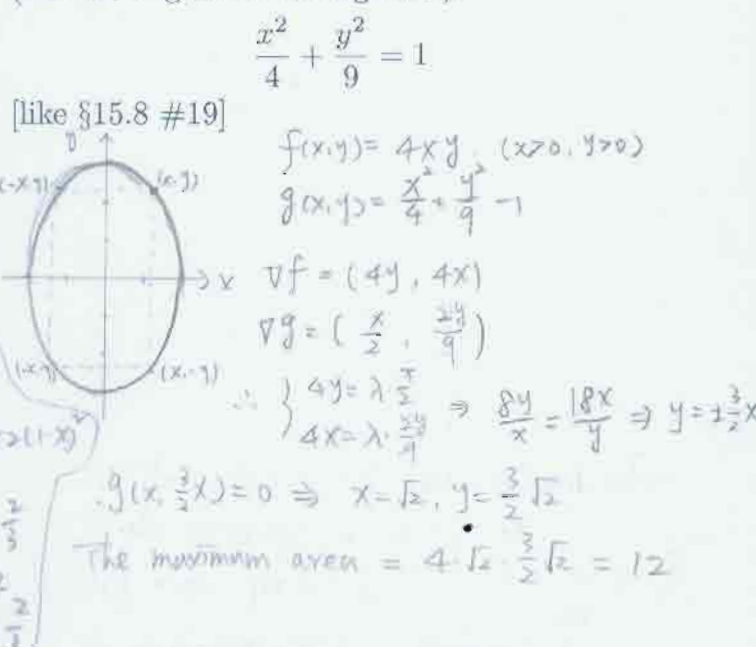 x²/4 + y²/9 = 1
[like §15.8 #19]
f(x,y) = 4xy (x>0, y>0)
(x,y)
g(x,y) = x²/4 + y²/9 - 1
x
∇f = (4y, 4x)
∇g = (x/2, 2y/9)
(x,-y)
∴ { 4y = λ·x/2
4x = λ·2y/9
⇒ 8y/x = 18x/y ⇒ y = ±3/2 x
g(x, 3/2 x) = 0 ⇒ x = √2, y = 3/2 √2
The maximum area = 4·√2·3/2 √2 = 12